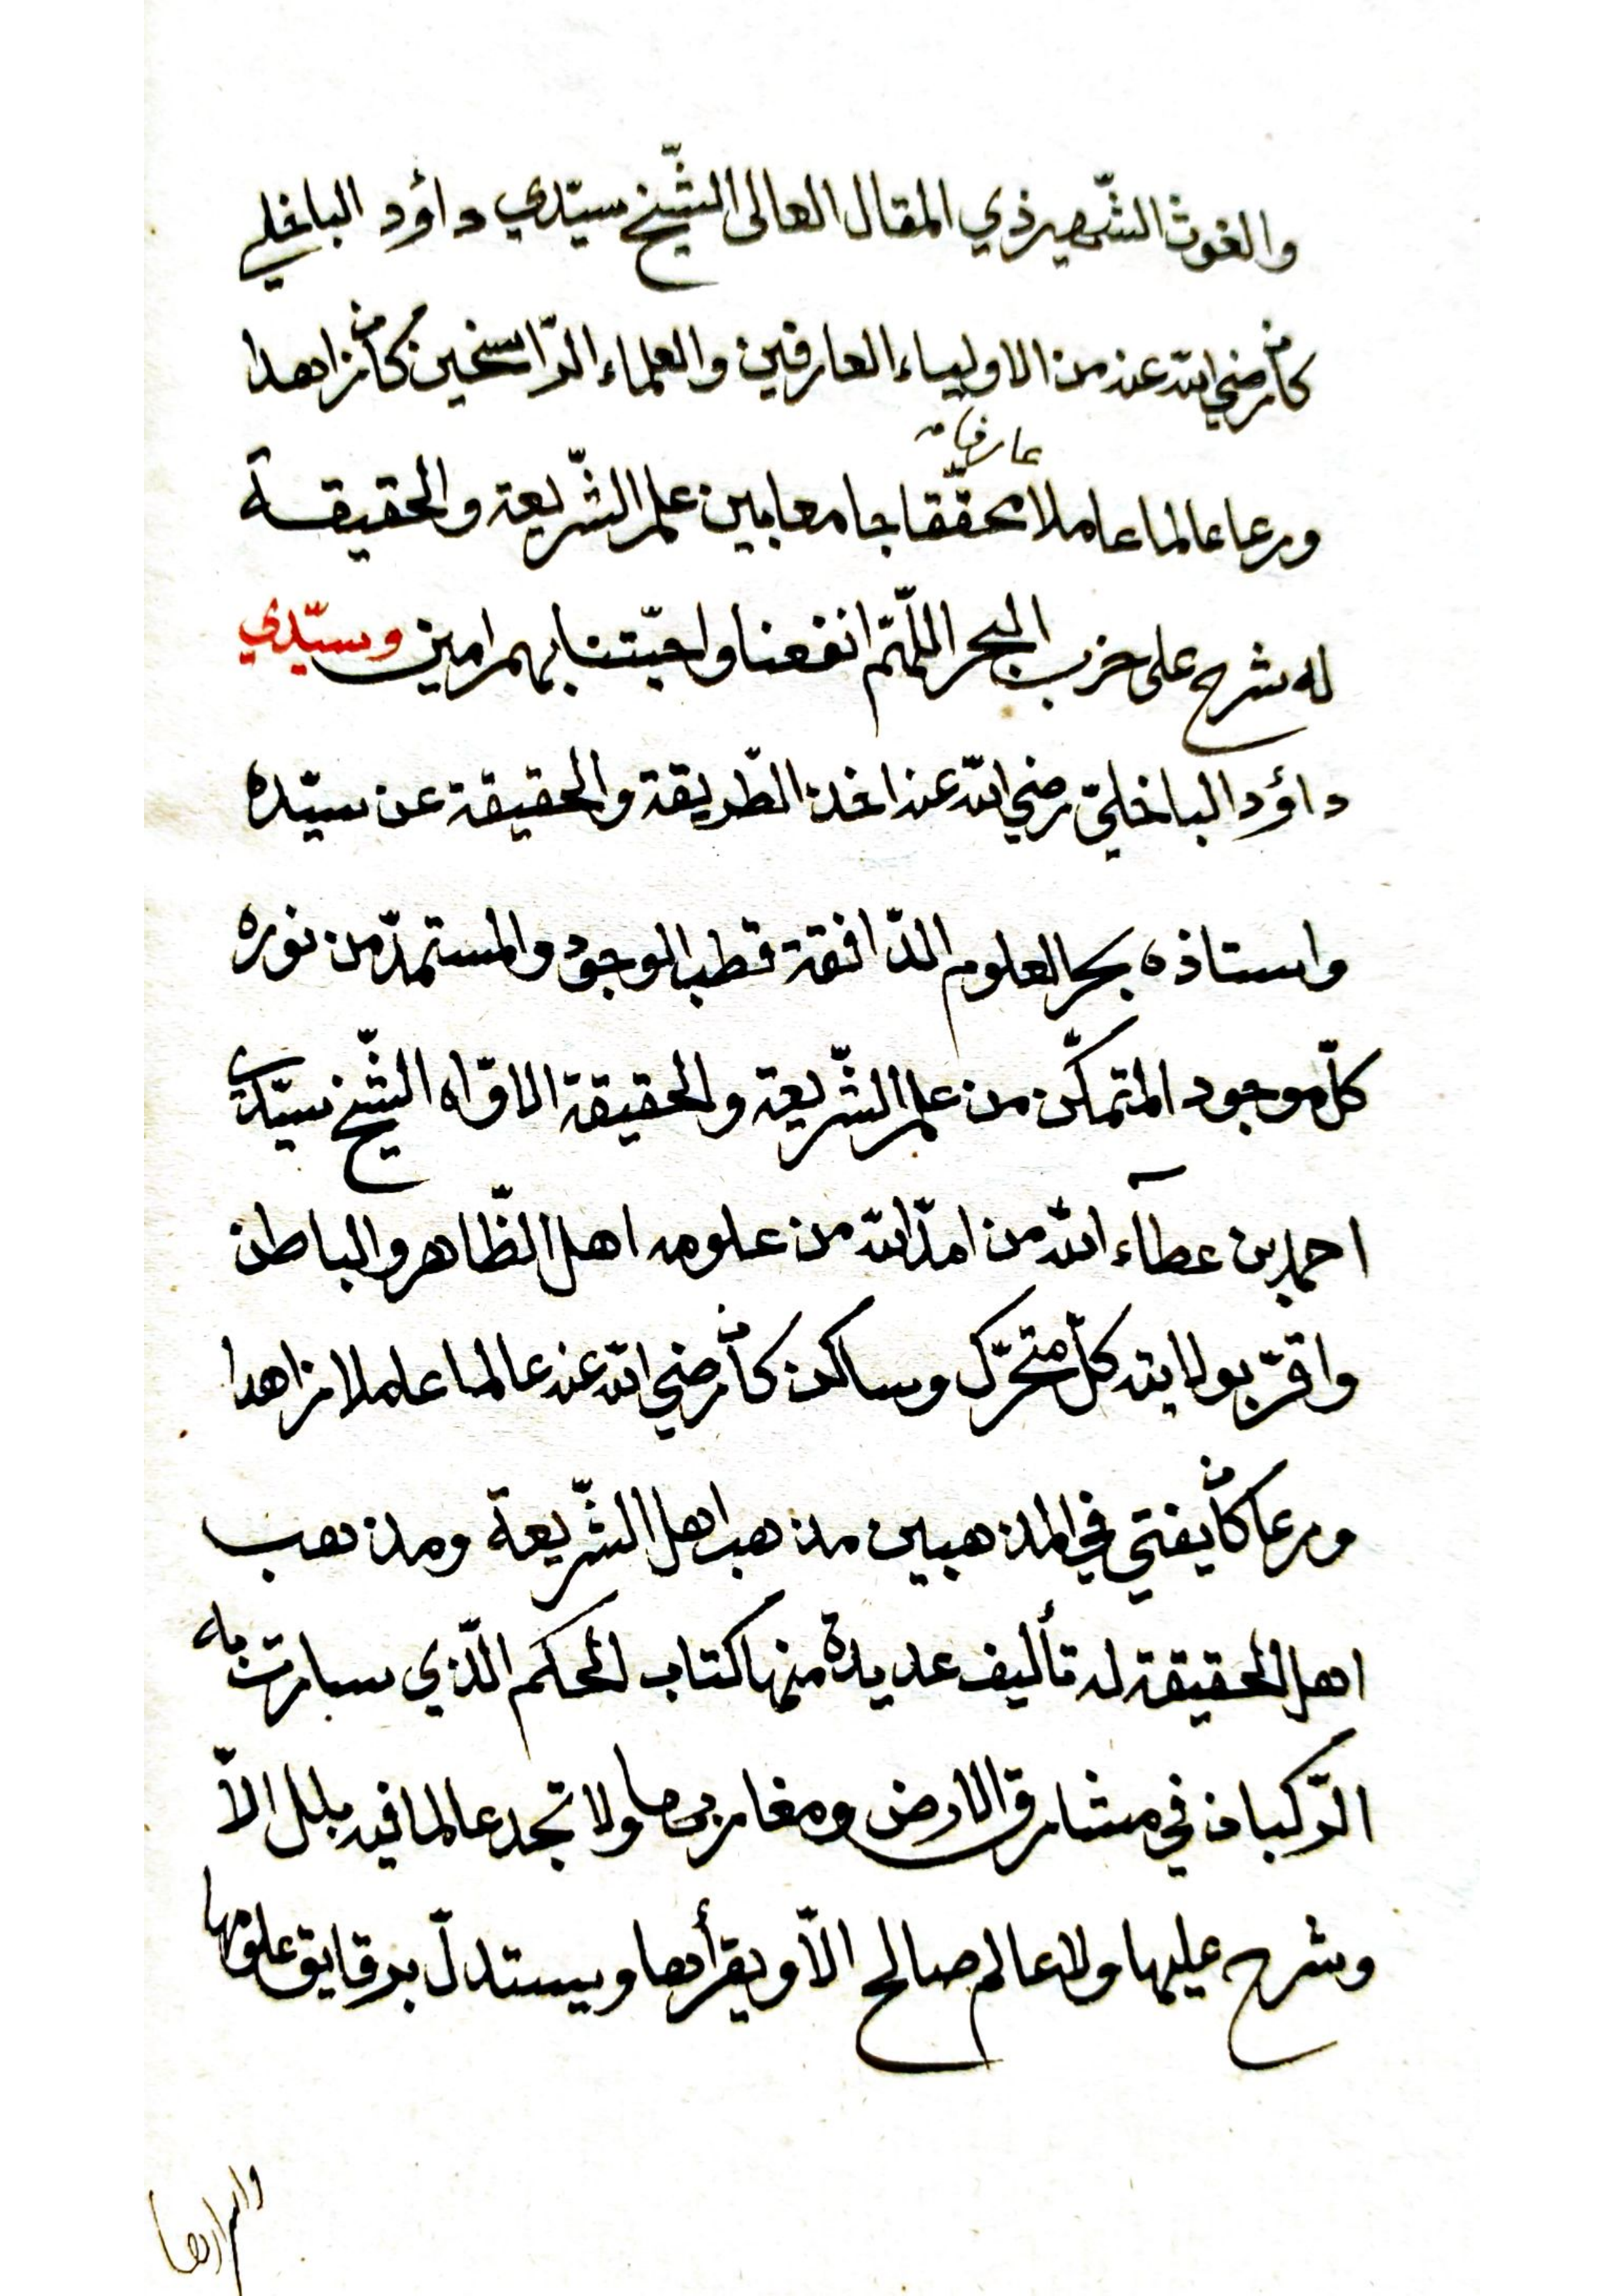 والغوث الشّهير ذي المقال العالى الشّيخ سيّدي داؤد الباخلي
كان رضي الله عنه من الاولياء العارفين والعلماء الرّاسخين كان زاهدا
عارفا
ورعا عالما عاملا محقّقا جامعا بين علم الشّريعة والحقيقة
له شرح على حزب البحر اللّهمّ انفعنا واحبّتنا بهم امين وسيّدي
داؤد الباخليّ رضي الله عنه اخذ الطّريقة والحقيقة عن سيّده
واستاذه بحر العلوم الدّافقة قطب الوجود والمستمدّ من نوره
كلّ موجود المتمكّن من علم الشّريعة والحقيقة الاوّاه الشّيخ سيّدي
احمد بن عطآء الله من امدّ الله من علومه اهل الظّاهر والباطن
واقرّ بولايته كلّ متحرّك وساكن كان رضي الله عنه عالما عاملا زاهدا
ورعا كان يفتي في المذهبين مذهب اهل الشّريعة ومذهب
اهل الحقيقة له تأليف عديدة منها كتاب الحكم الّذي سارت به
الرّكبان في مشارق الارض ومغاربها ولا تجد عالما في بلد الاّ
وشرح عليها ولا عالم صالح الاّ ويقرأها ويستدلّ برقايق علومها